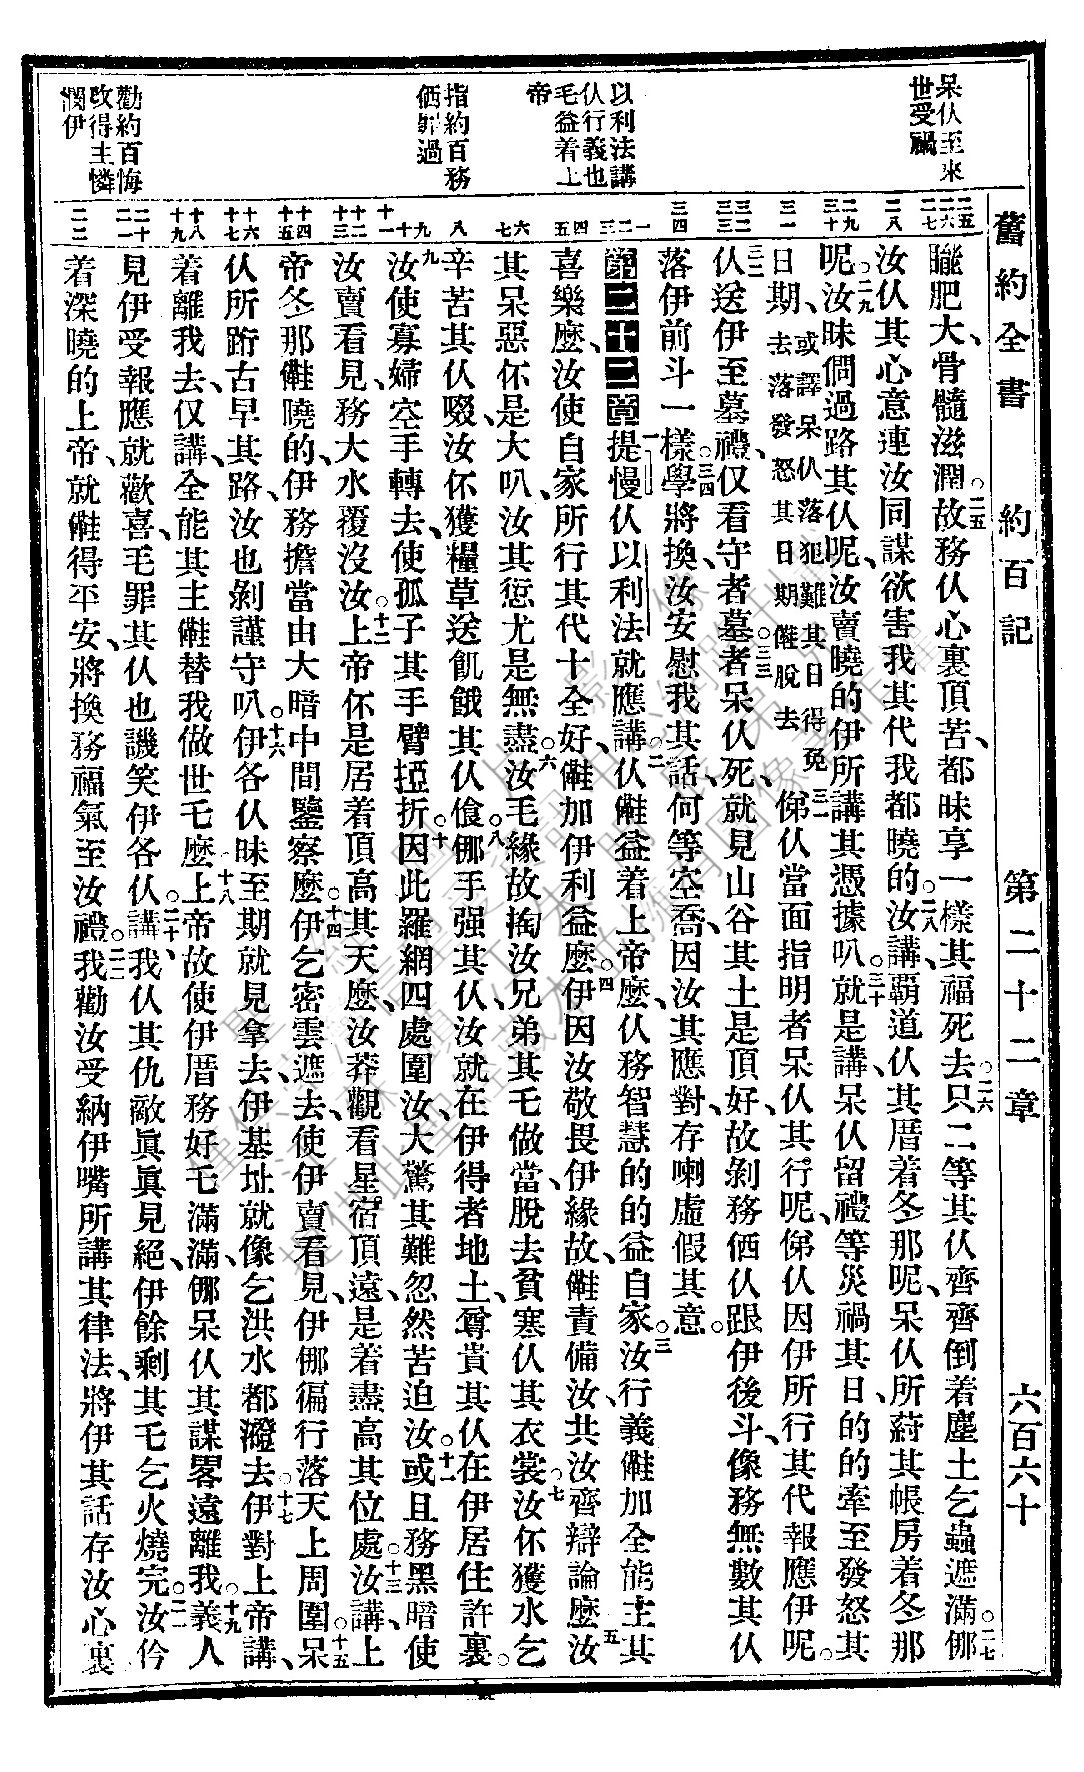 舊約全書 約百記 第二十二章 六百六十
呆仈至來
世受禍
以利法講
仈行義也
毛益着上
帝
指約百務
㑚罪過
勸約百悔
改得主憐
憫伊
朧肥大、骨髓滋潤。二五故務仈心裏頂苦、都昧享一樣其福死去。二六只二等其仈、齊齊倒着塵土乞蟲遮滿㑚。二七
汝仈其心意連汝同謀欲害我其代我都曉的。二八汝講、覇道仈其厝着冬那呢、呆仈所蒞其帳房着冬那
呢。二九汝昧問過路其仈呢、汝賣曉的伊所講其憑據叭。三十就是講、呆仈留禮等災禍其日的的牽至發怒其
日期、或譯呆仈落犯難其日得免去落發怒其日期㒉脫去三一俤仈當面指明者呆仈其行呢、俤仈因伊所行其代報應伊呢。
三二仈送伊至墓禮、仅看守者墓。三三者呆仈死、就見山谷其土是頂好、故剝務㑚仈跟伊後斗、像務無數其仈
落伊前斗一樣。三四學將換汝安慰我其話、何等空喬、因汝其應對、存喇虛假其意。
第二十二章一提慢仈以利法就應講。二仈㒉益着上帝麼、仈務智慧的的益自家。三汝行義㒉加全能主其
喜樂麼、汝使自家所行其代十全好、㒉加伊利益麼。四伊因汝敬畏伊緣故、㒉責備汝共汝齊辯論麼。五汝
其呆惡伓是大叭、汝其愆尤是無盡。六汝毛緣故掏汝兄弟其乇做當、脫去貧寒仈其衣裳。七汝伓獲水乞
辛苦其仈啜、汝伓獲糧草送飢餓其仈飡。八㑚手强其仈、汝就在伊得者地土、尊貴其仈在伊居住許裏。
九汝使寡婦空手轉去、使孤子其手臂掗折。十因此羅網四處圍汝、大驚其難忽然苦迫汝。十一或且務黑暗使
汝賣看見、務大水覆沒汝。十二上帝伓是居着頂高其天麼、汝莽觀看星宿頂遠、是着盡高其位處。十三汝講、上
帝冬那㒉曉的、伊務擔當由大暗中間鑒察麼。十四伊乞密雲遮去、使伊賣看見、伊㑚徧行落天上周圍。十五呆
仈所跕古早其路、汝也剝謹守叭。十六伊各仈昧至期就見拿去、伊基址就像乞洪水都潑去。十七伊對上帝講、
着離我去、仅講、全能其主㒉替我做世乇麼。十八上帝故使伊厝務好乇滿滿、㑚呆仈其謀畧遠離我。十九義人
見伊受報應就歡喜、毛罪其仈也譏笑伊各仈講、二十我仈其仇敵眞眞見絕、伊餘剩其乇乞火燒完。二一汝仱
着深曉的上帝、就㒉得平安、將換務福氣至汝禮。二二我勸汝受納伊嘴所講其律法、將伊其話存汝心裏